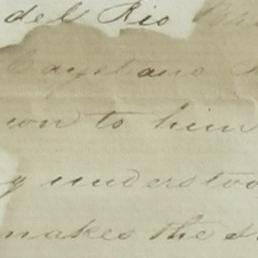 del Rio
Cayetano
own to him
y understoo
makes the s